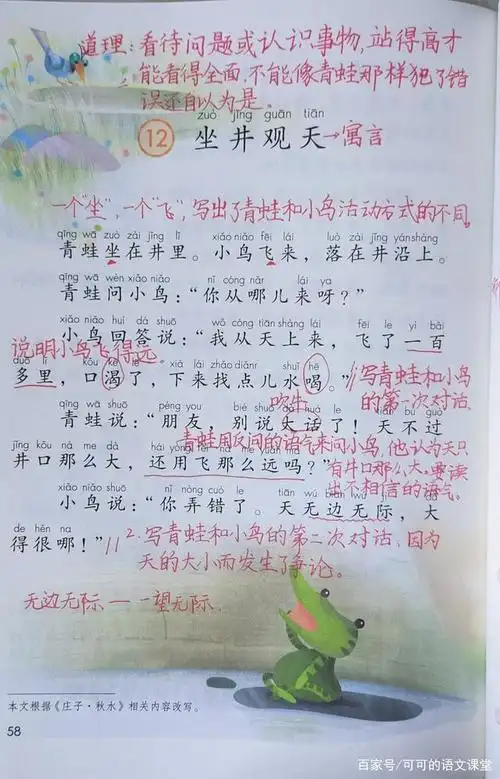 道理：看待问题或认识事物，站得高才
能看得全面，不能像青蛙那样犯了错
误还自以为是。
zuò jǐng guān tiān
12 坐井观天→寓言
一个“坐”，一个“飞”，写出了青蛙和小鸟活动方式的不同。
qīng wā zuò zài jǐng lǐ xiǎo niǎo fēi lái luò zài jǐng yán shàng
青蛙坐在井里。小鸟飞来，落在井沿上。
qīng wā wèn xiǎo niǎo nǐ cóng nǎr lái ya
青蛙问小鸟：“你从哪儿来呀？”
xiǎo niǎo huí dá shuō wǒ cóng tiān shàng lái fēi le yì bǎi
小鸟回答说：“我从天上来，飞了一百
说明小鸟飞得远。
duō lǐ kǒu kě le xià lái zhǎo diǎnr shuǐ hē
多里，口渴了，下来找点儿水喝。”
1写青蛙和小鸟
的第一次对话。
吹牛
qīng wā shuō péng you bié shuō dà huà le tiān bú guò
青蛙说：“朋友，别说大话了！天不过
青蛙用反问的语气来问小鸟，他认为天只
有井口那么大。要读
出不相信的语气。
jǐng kǒu nà me dà hái yòng fēi nà me yuǎn ma
井口那么大，还用飞那么远吗？”
xiǎo niǎo shuō nǐ nòng cuò le tiān wú biān wú jì dà
小鸟说：“你弄错了。天无边无际，大
de hěn na
得很哪！”
2.写青蛙和小鸟的第二次对话，因为
天的大小而发生了争论。
无边无际——一望无际
本文根据《庄子·秋水》相关内容改写。
58
百家号/可可的语文课堂